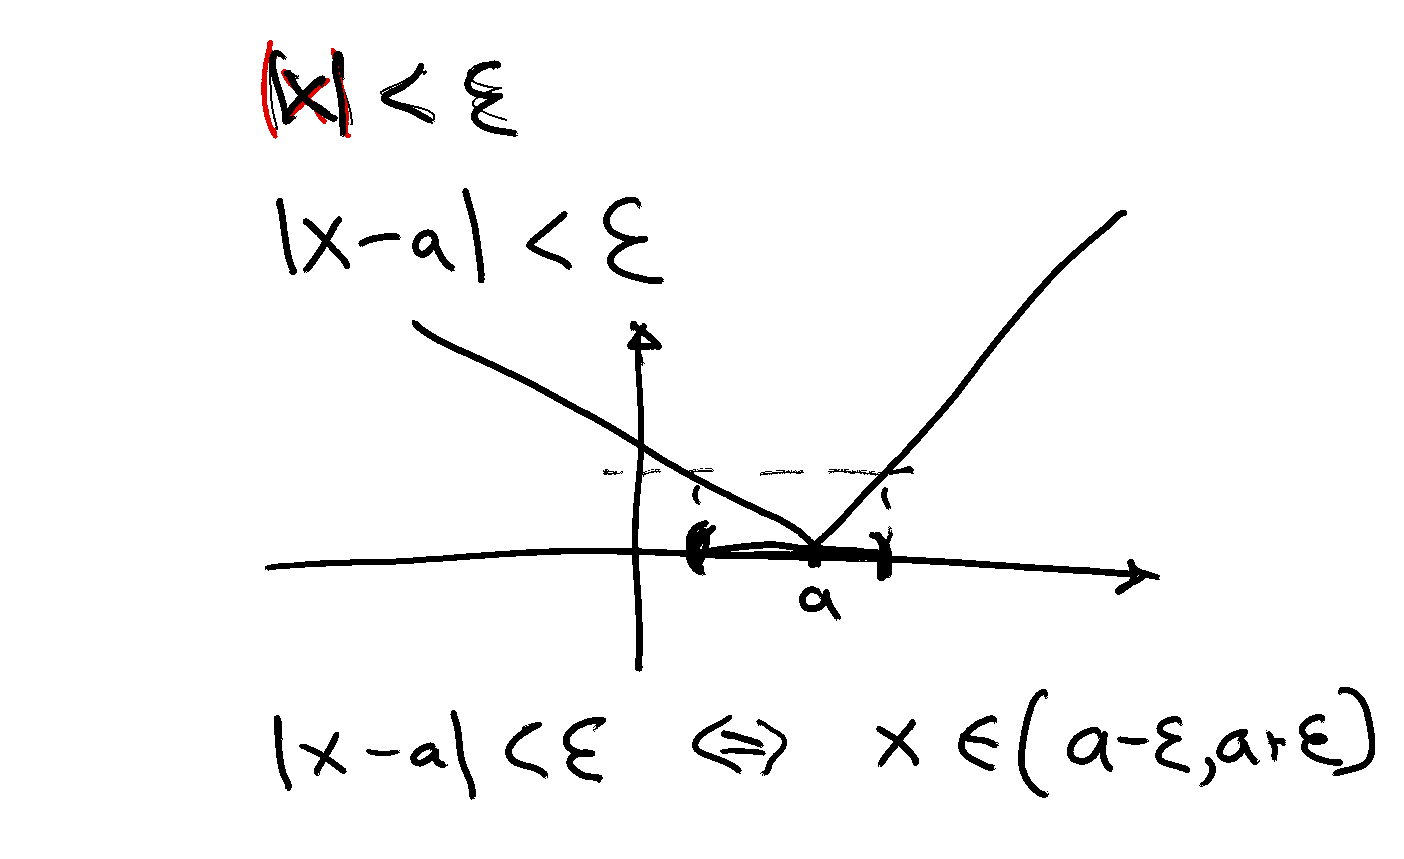 |x| < ε
|x-a| < ε
a
|x-a| < ε ⇔ x ∈ (a-ε, a+ε)